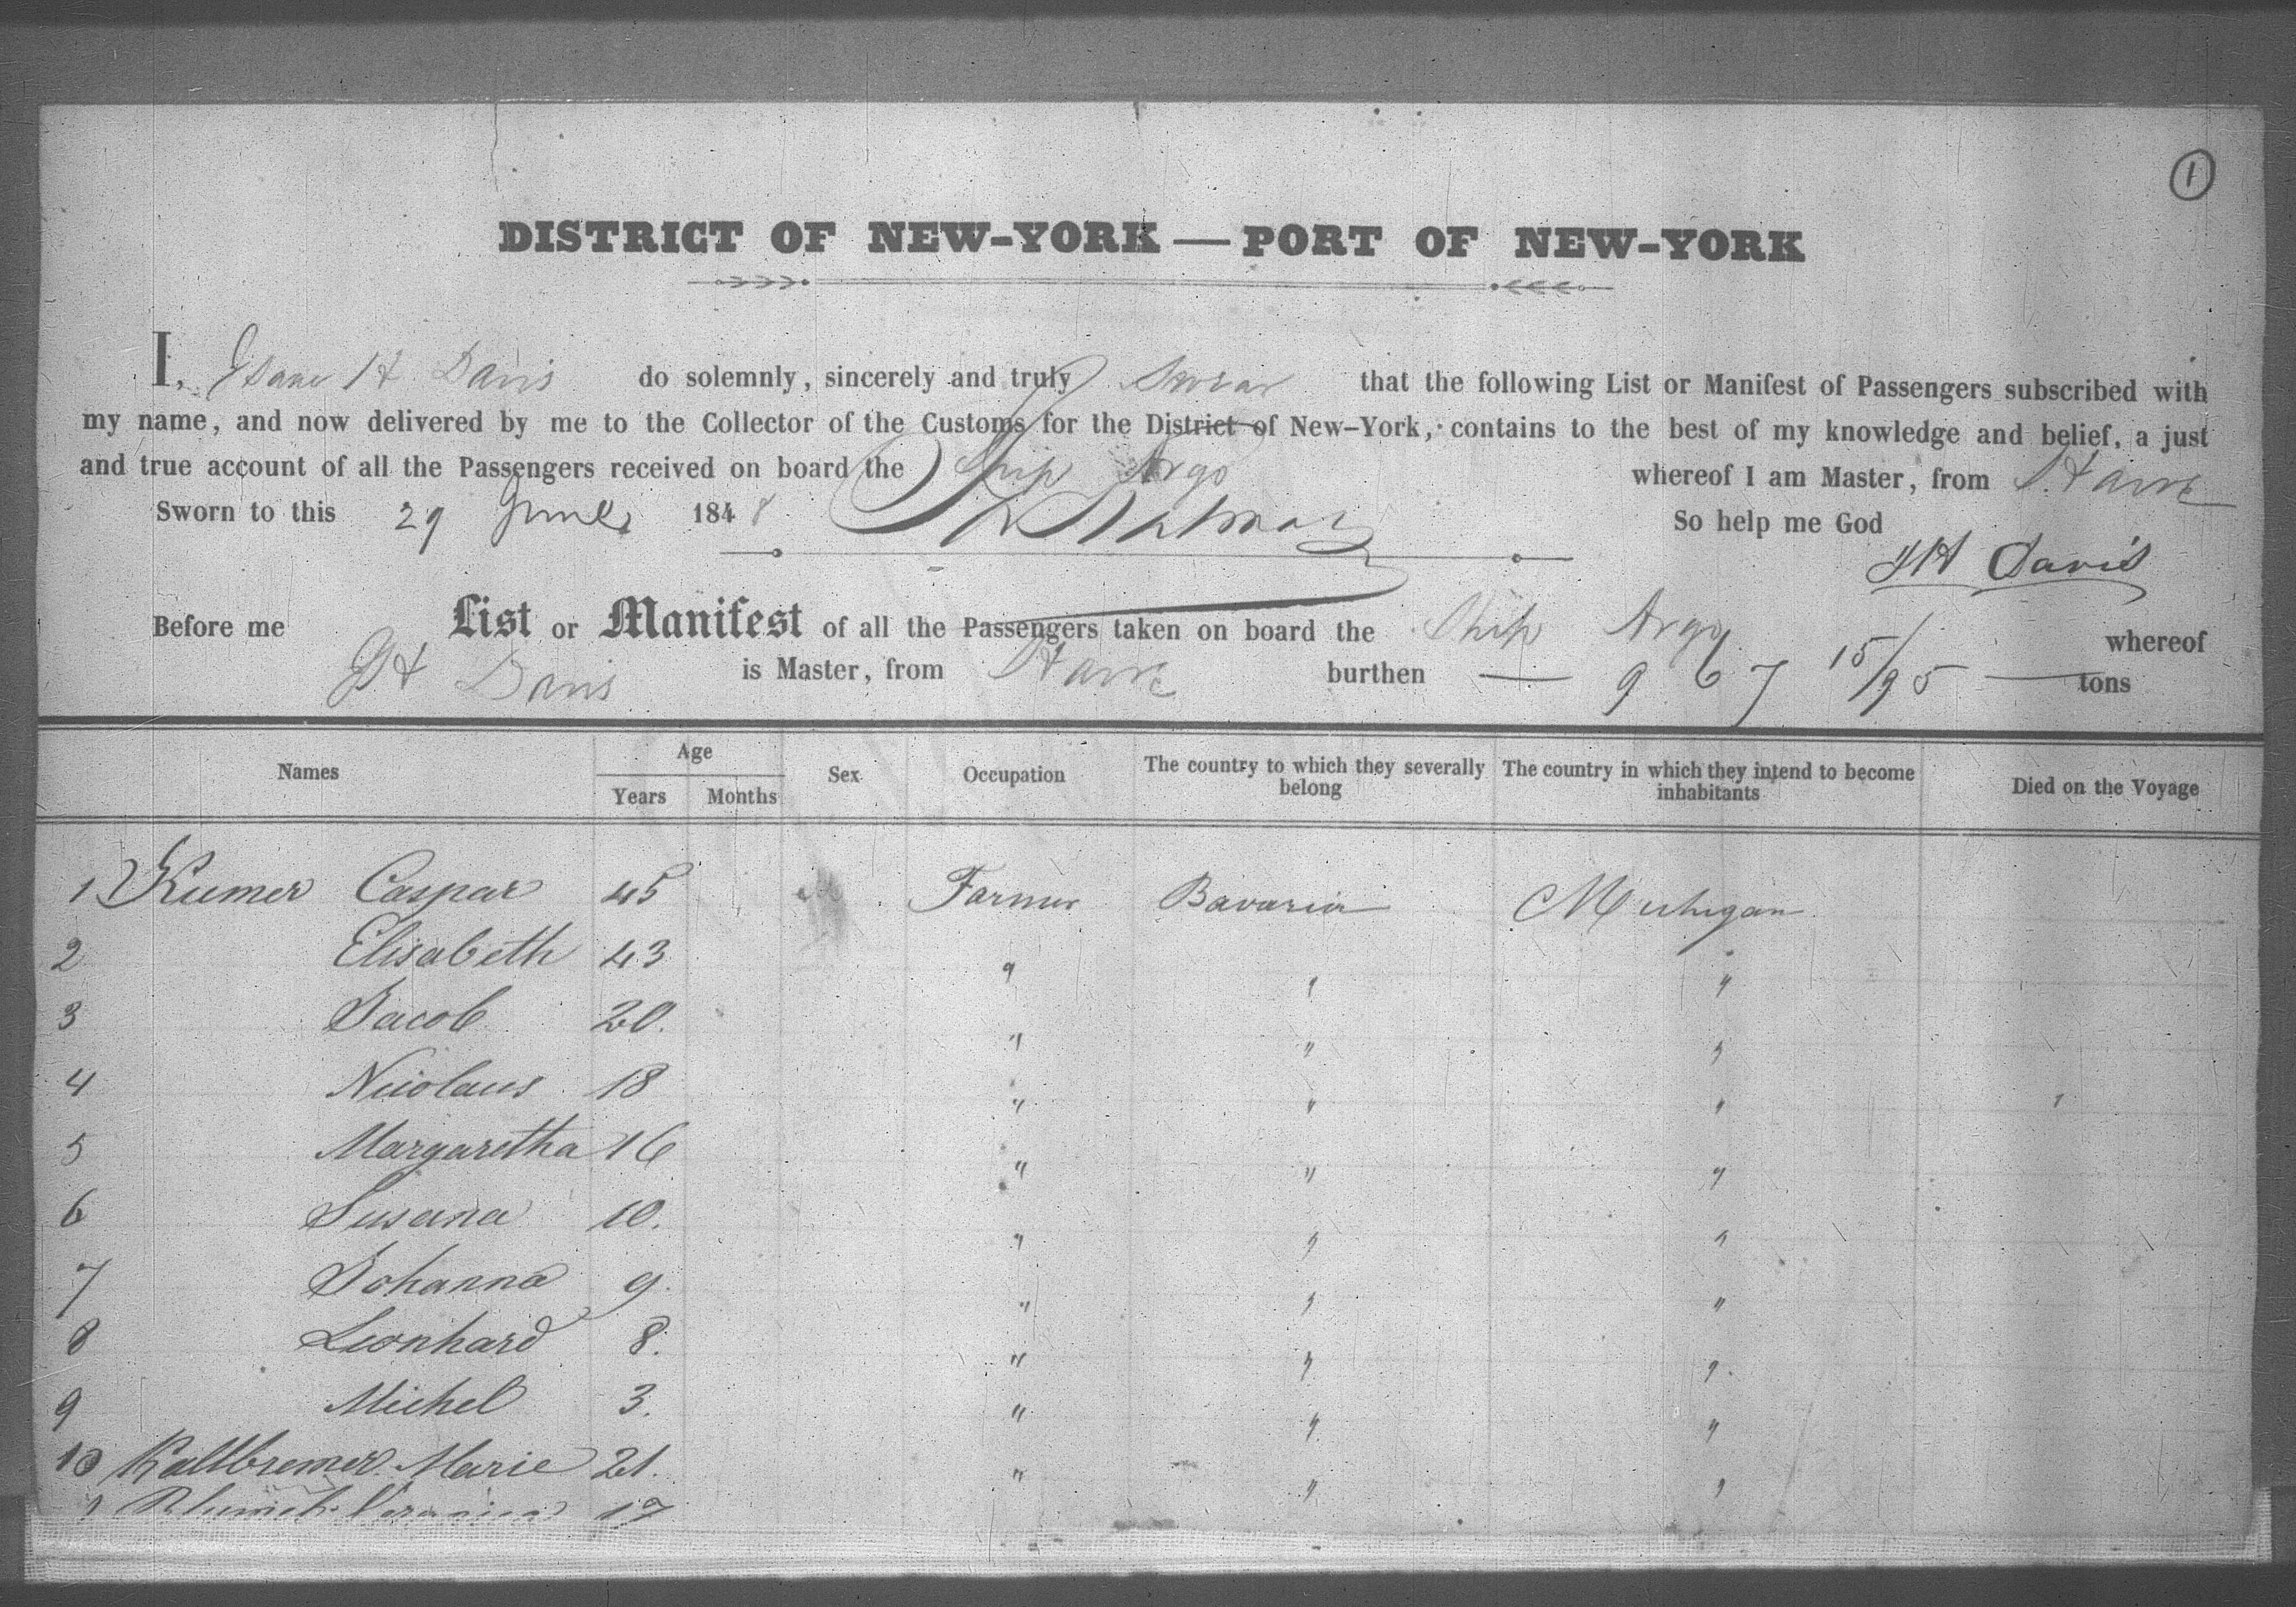 1
DISTRICT OF NEW-YORK — PORT OF NEW-YORK
I, Isaac H Davis do solemnly, sincerely and truly Swear that the following List or Manifest of Passengers subscribed with
my name, and now delivered by me to the Collector of the Customs for the District of New-York, contains to the best of my knowledge and belief, a just
and true account of all the Passengers received on board the Ship Argo whereof I am Master, from Havre
Sworn to this 29 June 1848 So help me God
I H Davis
Before me List or Manifest of all the Passengers taken on board the Ship Argo whereof
I H Davis is Master, from Havre burthen — 967 15/95 — tons
Names Age Years Months Sex Occupation The country to which they severally belong The country in which they intend to become inhabitants Died on the Voyage
1 Kumer Caspar 45 Farmer Bavaria Michigan
2 Elisabeth 43 " " "
3 Jacob 20. " " "
4 Nicolaus 18 " " " "
5 Margaretha 16 " " "
6 Susana 10. " " "
7 Johanna 9. " " "
8 Leonhard 8. " " "
9 Michel 3. " " "
10 Kallbremer Marie 21. " " "
1 17